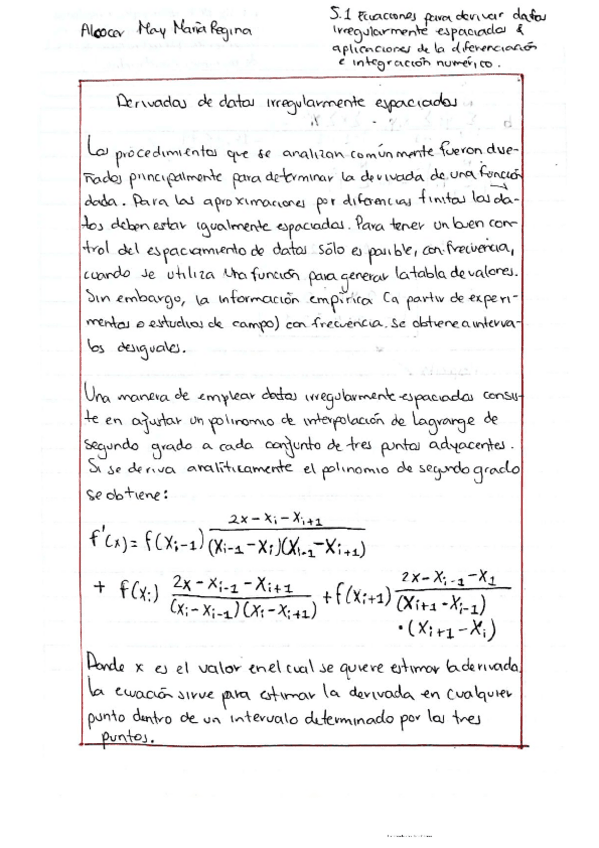 Alcocer May María Regina
5.1 Ecuaciones para derivar datos
irregularmente espaciados &
aplicaciones de la diferenciación
e integración numérico.
Derivadas de datos irregularmente espaciados
Los procedimientos que se analizan comúnmente fueron dise-
ñados principalmente para determinar la derivada de una función
dada. Para las aproximaciones por diferencias finitas los da-
tos deben estar igualmente espaciados. Para tener un buen con-
trol del espaciamiento de datos sólo es posible, con frecuencia,
cuando se utiliza una función para generar la tabla de valores.
Sin embargo, la información empírica (a partir de experi-
mentos o estudios de campo) con frecuencia se obtiene a interva-
los desiguales.
Una manera de emplear datos irregularmente espaciados consis-
te en ajustar un polinomio de interpolación de Lagrange de
segundo grado a cada conjunto de tres puntos adyacentes.
Si se deriva analíticamente el polinomio de segundo grado
se obtiene:
f'(x) = f(xi-1) 2x - xi - xi+1 / (xi-1 - xi)(xi-1 - xi+1)
+ f(xi) 2x - xi-1 - xi+1 / (xi - xi-1)(xi - xi+1) + f(xi+1) 2x - xi-1 - x1 / (xi+1 - xi-1)
• (xi+1 - xi)
Donde x es el valor en el cual se quiere estimar la derivada,
la ecuación sirve para estimar la derivada en cualquier
punto dentro de un intervalo determinado por los tres
puntos.